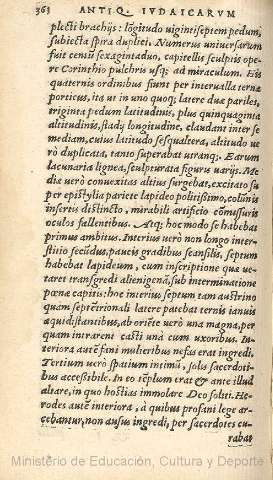 363 ANTIQ. IVDAICARVM
plecti brachijs: lōgitudo vigintiseptem pedum,
subiecta spira duplici. Numerus universarum
fuit centū sexagintaduo, capitellis sculptis ope
re Corinthio pulchris usq; ad miraculum. Eis
quaternis ordinibus fiunt per intervalla ternæ
porticus, ita ut in uno quoq; latere duæ pariles,
triginta pedum latitudinis, plus quinquaginta
altitudinis, stadij longitudine, claudant inter se
mediam, cuius latitudo sesqualtera, altitudo ve
rò duplicata, tanto superabat utranq;. Earum
lacunaria lignea, sculpturatæ figuræ varijs. Me
dia verò convexitas altius surgebat, excisato su
per epistylia pariete lapideo politissimo, columnis
insertis distincto, mirabili artificio cōmissuris
oculos fallentibus. Atq; hoc modo se habebat
primus ambitus. Interius verò non longo inter-
stitio secūdus, paucis gradibus scansilis, septum
habebat lapideum, cum inscriptione quæ ve-
taret transgredi alienigenā, sub interminatione
pœnæ capitis: hoc interius septum tam austrino
quàm septētrionali latere patebat ternis ianuis
æquidistantibus, ab oriēte verò una magna, per
quam intrarent casti unà cum uxoribus. In-
teriora autē fani mulieribus nefas erat ingredi.
Tertium verò spatium intimū, solis sacerdoti-
bus accessibile. In eo tēplum erat & ante illud
altare, in quo hostias immolare Deo soliti. He-
rodes autē interiora, à quibus profani lege ar-
cebantur, non ausus ingredi, per sacerdotes cu-
rabat
Ministerio de Educación, Cultura y Deporte